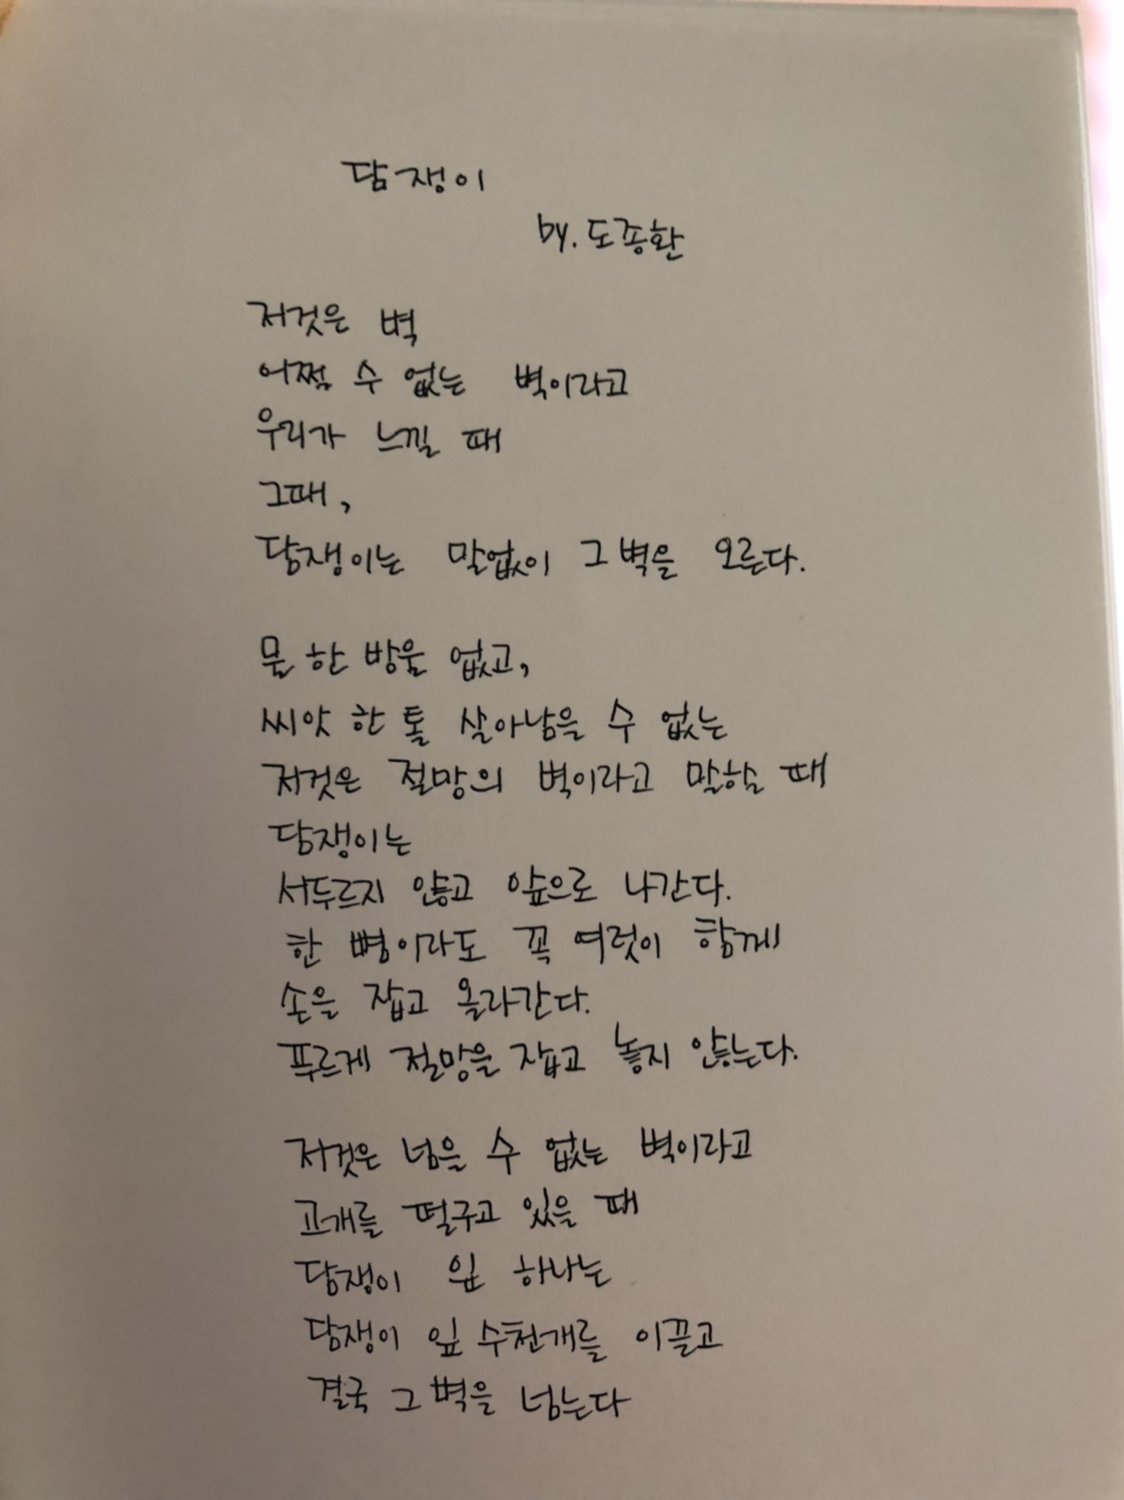 담쟁이
by. 도종환
저것은 벽
어쩔 수 없는 벽이라고
우리가 느낄 때
그때,
담쟁이는 말없이 그 벽을 오른다.
물 한 방울 없고,
씨앗 한 톨 살아남을 수 없는
저것은 절망의 벽이라고 말할 때
담쟁이는
서두르지 않고 앞으로 나간다.
한 뼘이라도 꼭 여럿이 함께
손을 잡고 올라간다.
푸르게 절망을 잡고 놓지 않는다.
저것은 넘을 수 없는 벽이라고
고개를 떨구고 있을 때
담쟁이 잎 하나는
담쟁이 잎 수천개를 이끌고
결국 그 벽을 넘는다